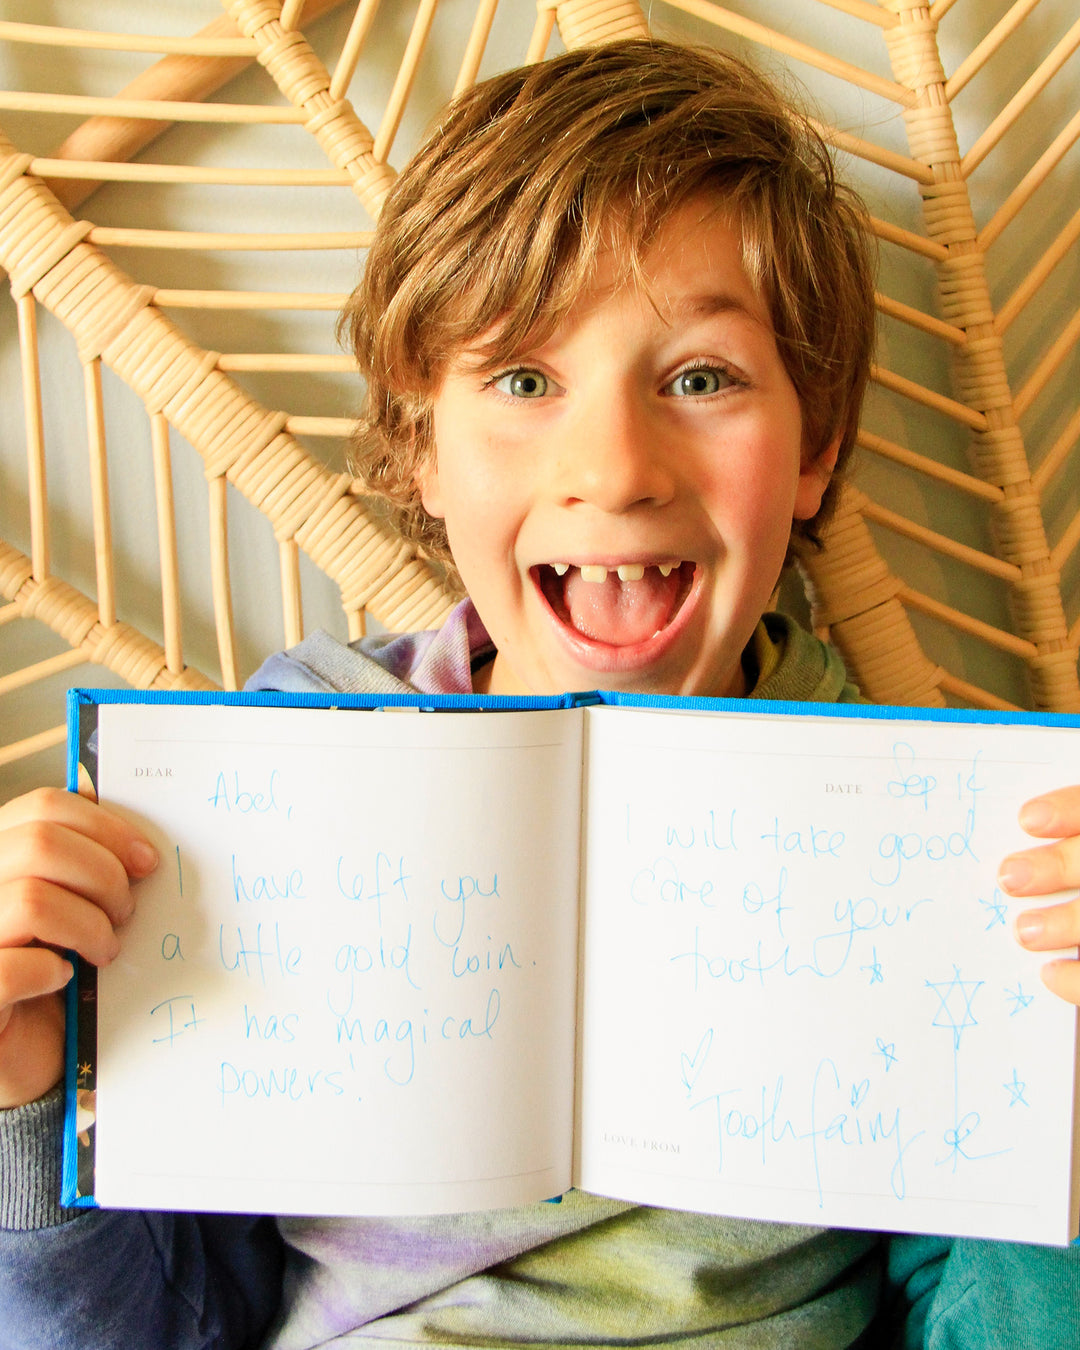 DEAR
Abel,
I have left you
a little gold coin.
It has magical
powers!
DATE Sep 14
I will take good
care of your
tooth
Toothfairy
LOVE FROM